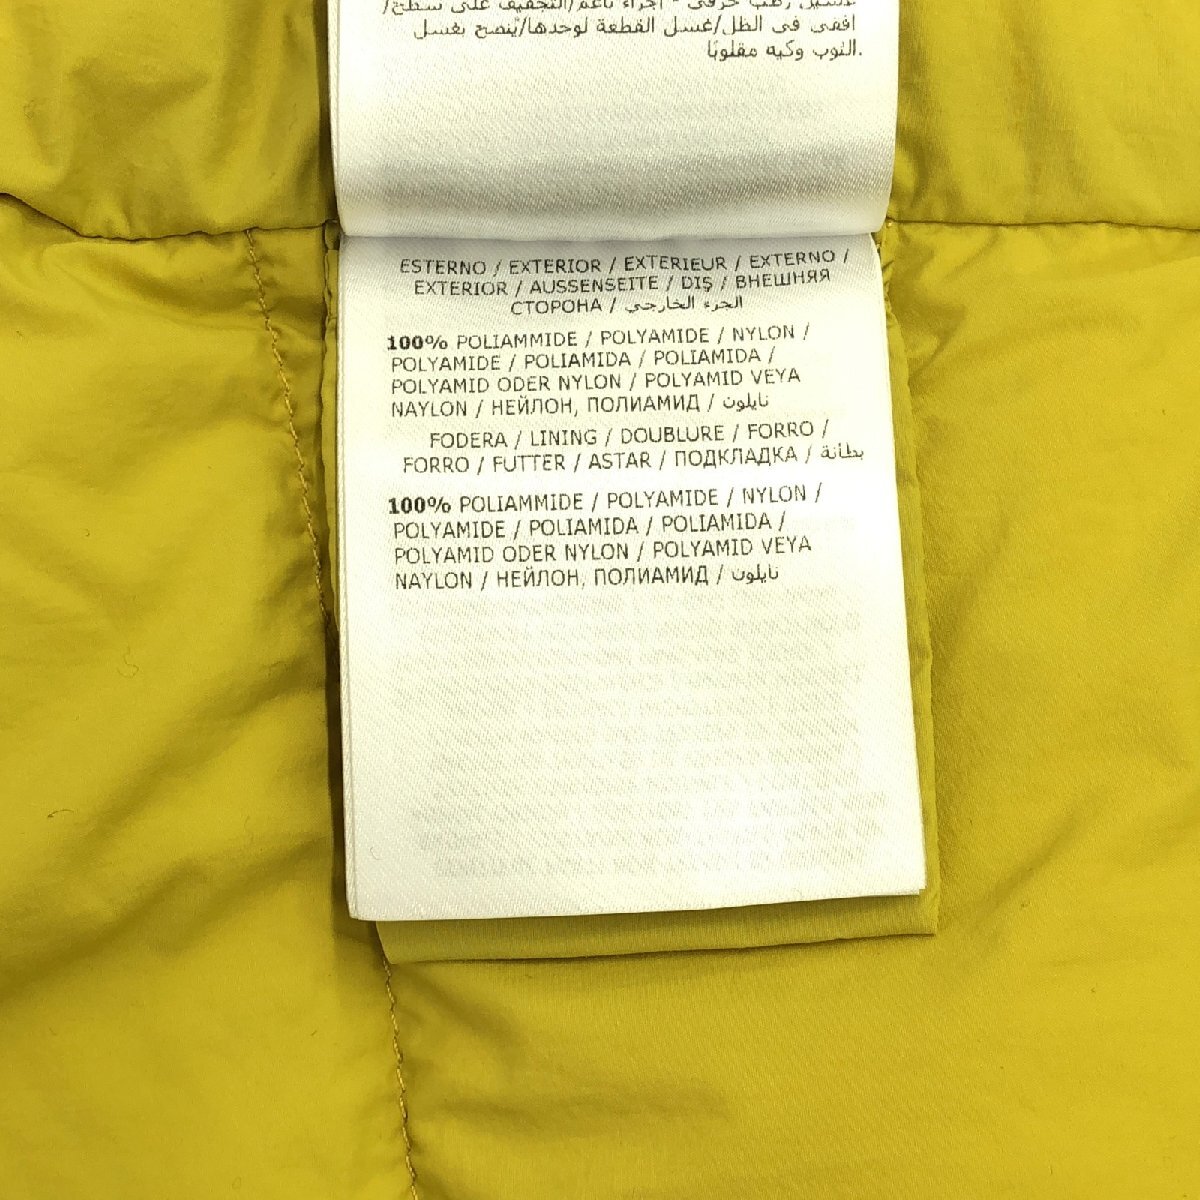 أفقي في الظل/غسل القطعة لوحدها/يُنصح بغسل
الثوب وكيه مقلوبًا.
ESTERNO / EXTERIOR / EXTERIEUR / EXTERNO /
EXTERIOR / AUSSENSEITE / DIŞ / ВНЕШНЯЯ
СТОРОНА / الجزء الخارجي
100% POLIAMMIDE / POLYAMIDE / NYLON /
POLYAMIDE / POLIAMIDA / POLIAMIDA /
POLYAMID ODER NYLON / POLYAMID VEYA
NAYLON / НЕЙЛОН, ПОЛИАМИД / نايلون
FODERA / LINING / DOUBLURE / FORRO /
FORRO / FUTTER / ASTAR / ПОДКЛАДКА / بطانة
100% POLIAMMIDE / POLYAMIDE / NYLON /
POLYAMIDE / POLIAMIDA / POLIAMIDA /
POLYAMID ODER NYLON / POLYAMID VEYA
NAYLON / НЕЙЛОН, ПОЛИАМИД / نايلون